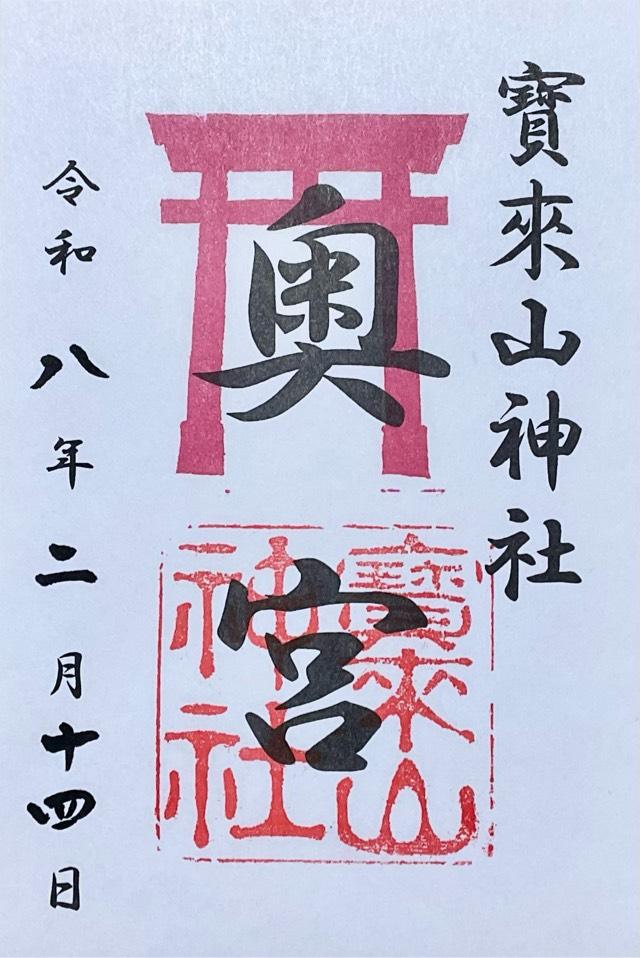 寶來山神社
奥宮
寶來山
神社
令和八年二月十四日